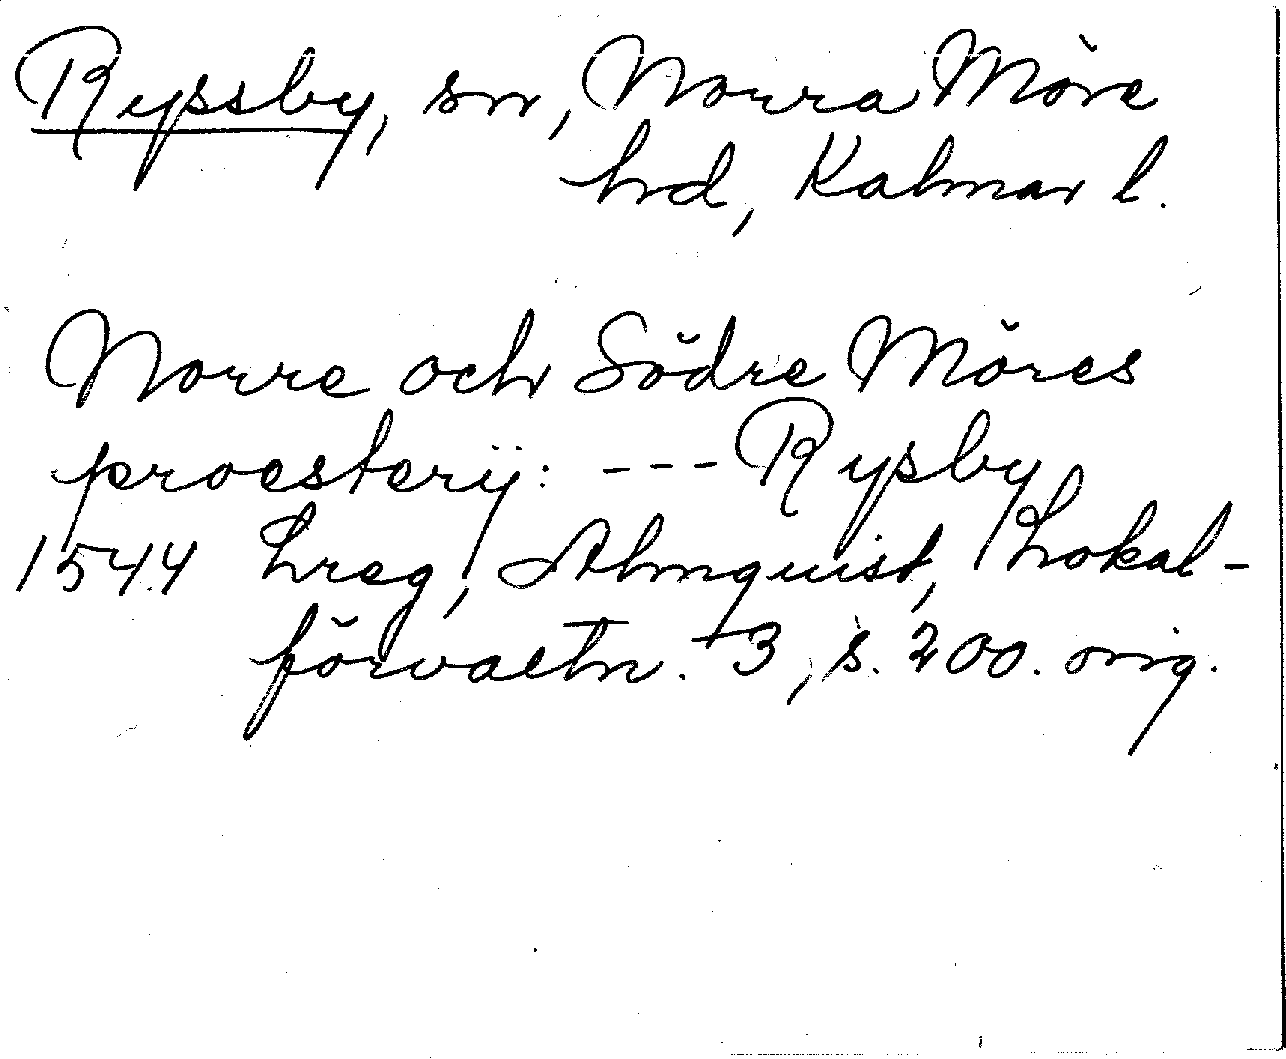 Ryssby, sn, Norra Möre
hd, Kalmar l.
Norre och Södre Möres
proesterÿ: --- Rysby
1544 Lreg, Almquist, Lokal-
förvaltn. 3, s. 200. orig.